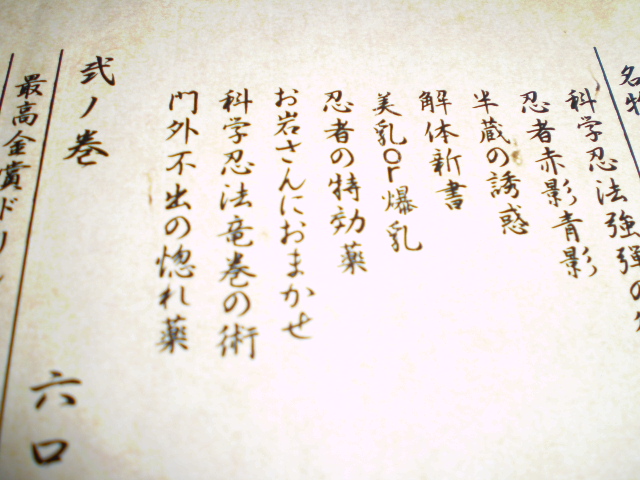 名物
科学忍法強弾の
忍者赤影青影
半蔵の誘惑
解体新書
美乳or爆乳
忍者の特効薬
お岩さんにおまかせ
科学忍法竜巻の術
門外不出の惚れ薬
弐ノ巻
六口
最高金賞ドリ